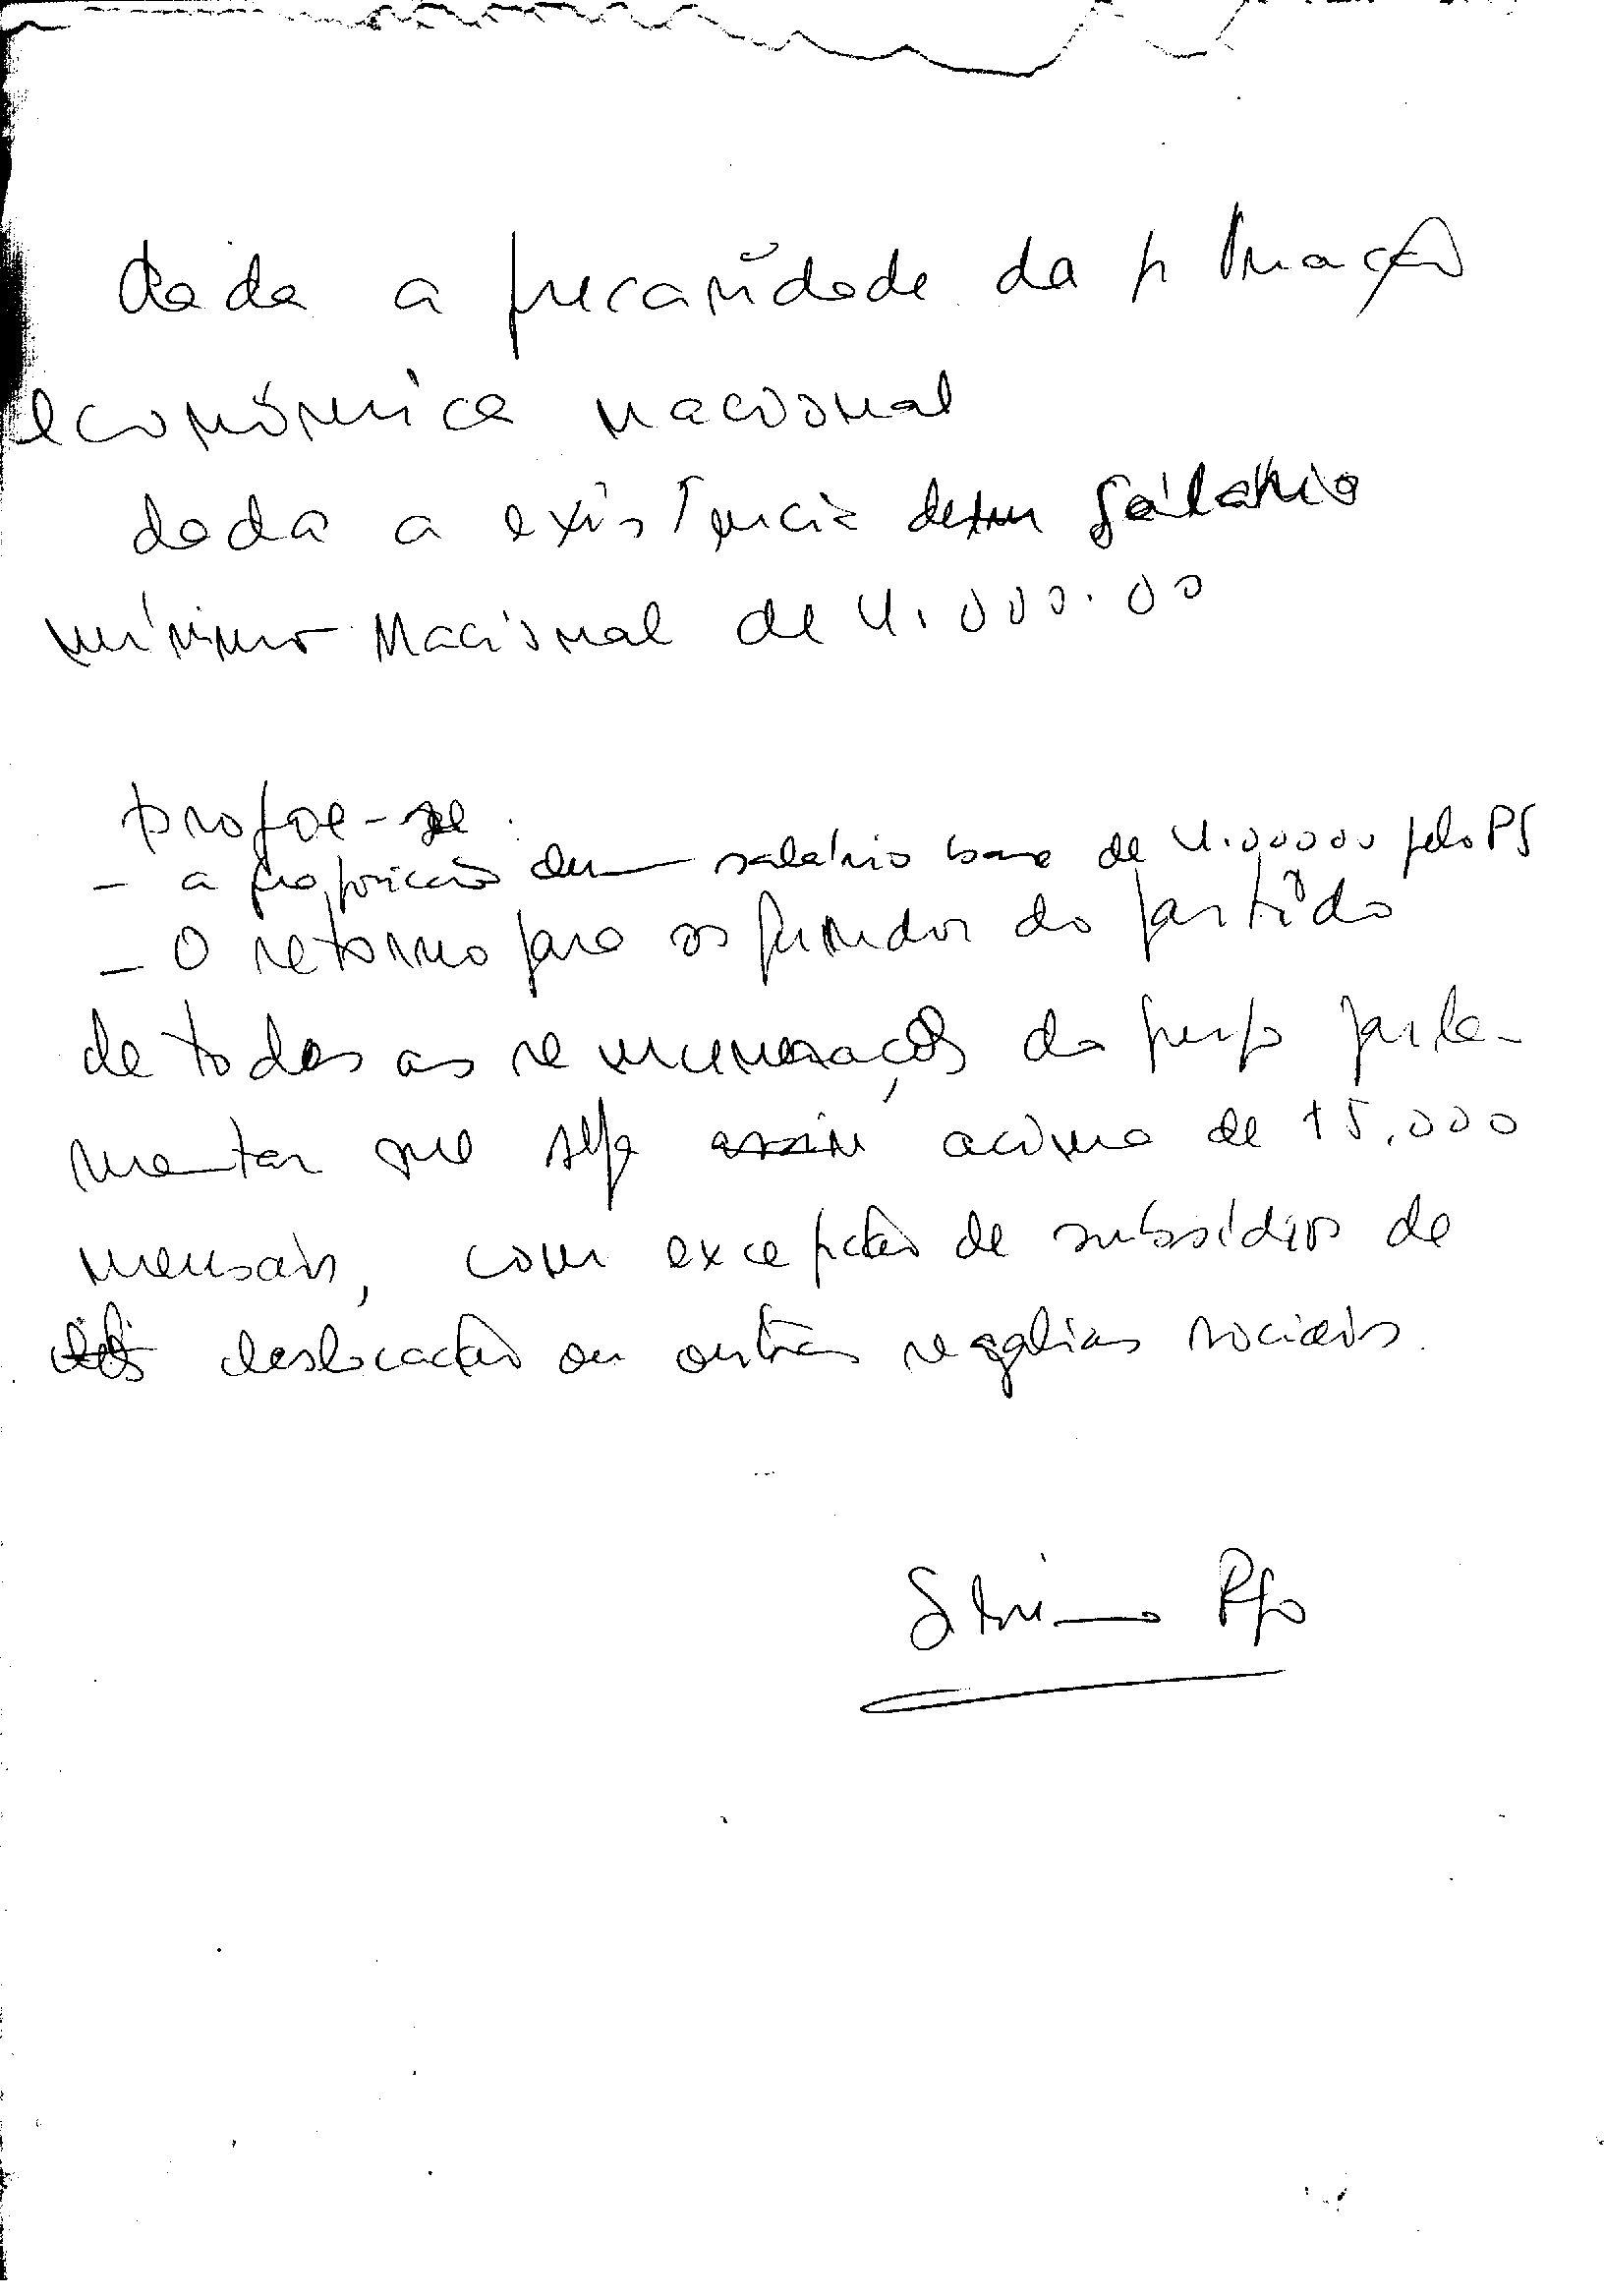 dada a precaridade da situação
económica nacional
dada a existência de um salário
mínimo Nacional de 4.000.00
propoe-se:
- a proposição dum salário base de 4.000 00 pelo PS
- O retorno para os fundos do partido
de todas as remunerações do grupo parla-
mentar que seja acima de 15.000
mensais, com excepção de subsídios de
deslocação ou outras regalias sociais.